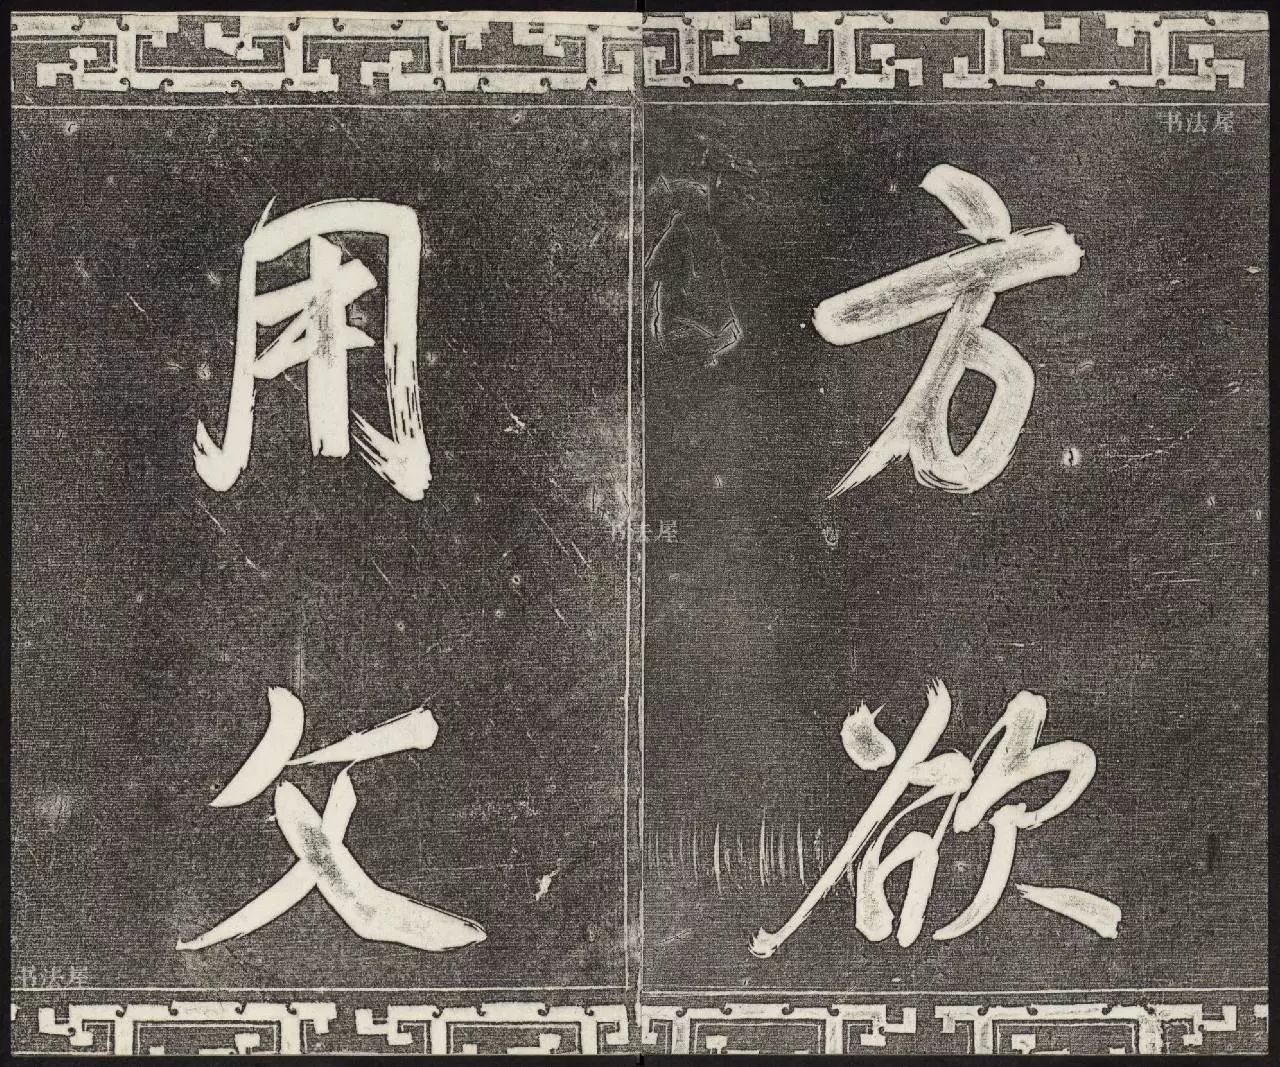 书法屋
方欲
用文
书法屋
书法屋